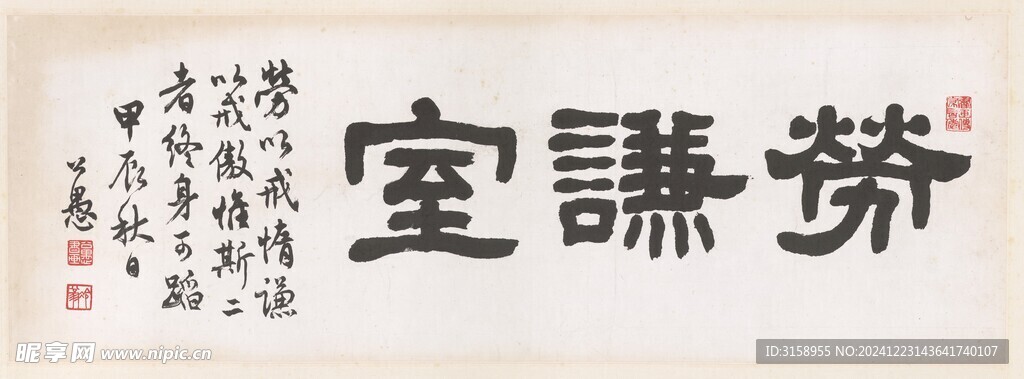 勞謙室
勞以戒惰謙
以戒傲惟斯二
者終身可蹈
甲辰秋日
公愚
昵享网 www.nipic.cn
ID:3158955 NO:20241223143641740107